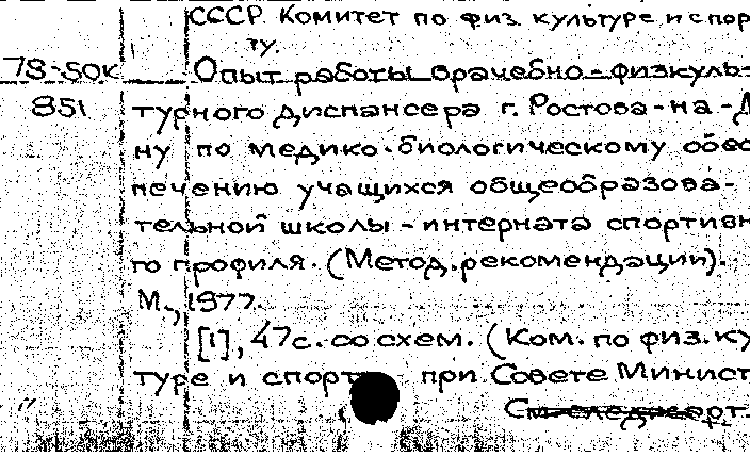 СССР. Комитет по физ. культуре и спор
ту.
78-50к Опыт работы врачебно-физкуль-
851 турного диспансера г. Ростова-на-Д
ну по медико-биологическому обес
печению учащихся общеобразова-
тельной школы-интерната спортивн
го профиля. (Метод. рекомендации).
М., 1977.
[1], 47с. со схем. (Ком. по физ. ку
туре и спорту при Совете Минист
См. след. карт.